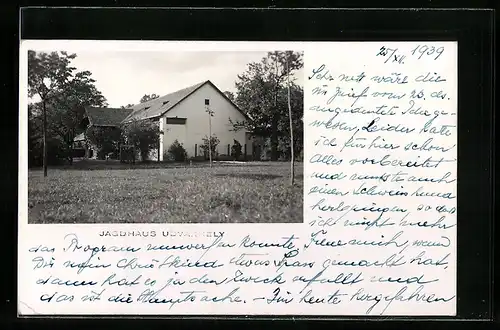 25/XII. 1939
Sehr nett wäre die
im Brief vom 23. ds.
angedeutete Idee ge-
wesen, leider hatte
ich für hier schon
Alles vorbereitet
und musste auch
einen Schweinehund
so dass
ich nicht mehr
JAGDHAUS UDVARHELY
das Program umwerfen konnte. Freue mich, wenn
Dir mein Christkind etwas Spass gemacht hat,
dann hat es ja den Zweck erfüllt und
das ist die Hauptsache. - Für heute